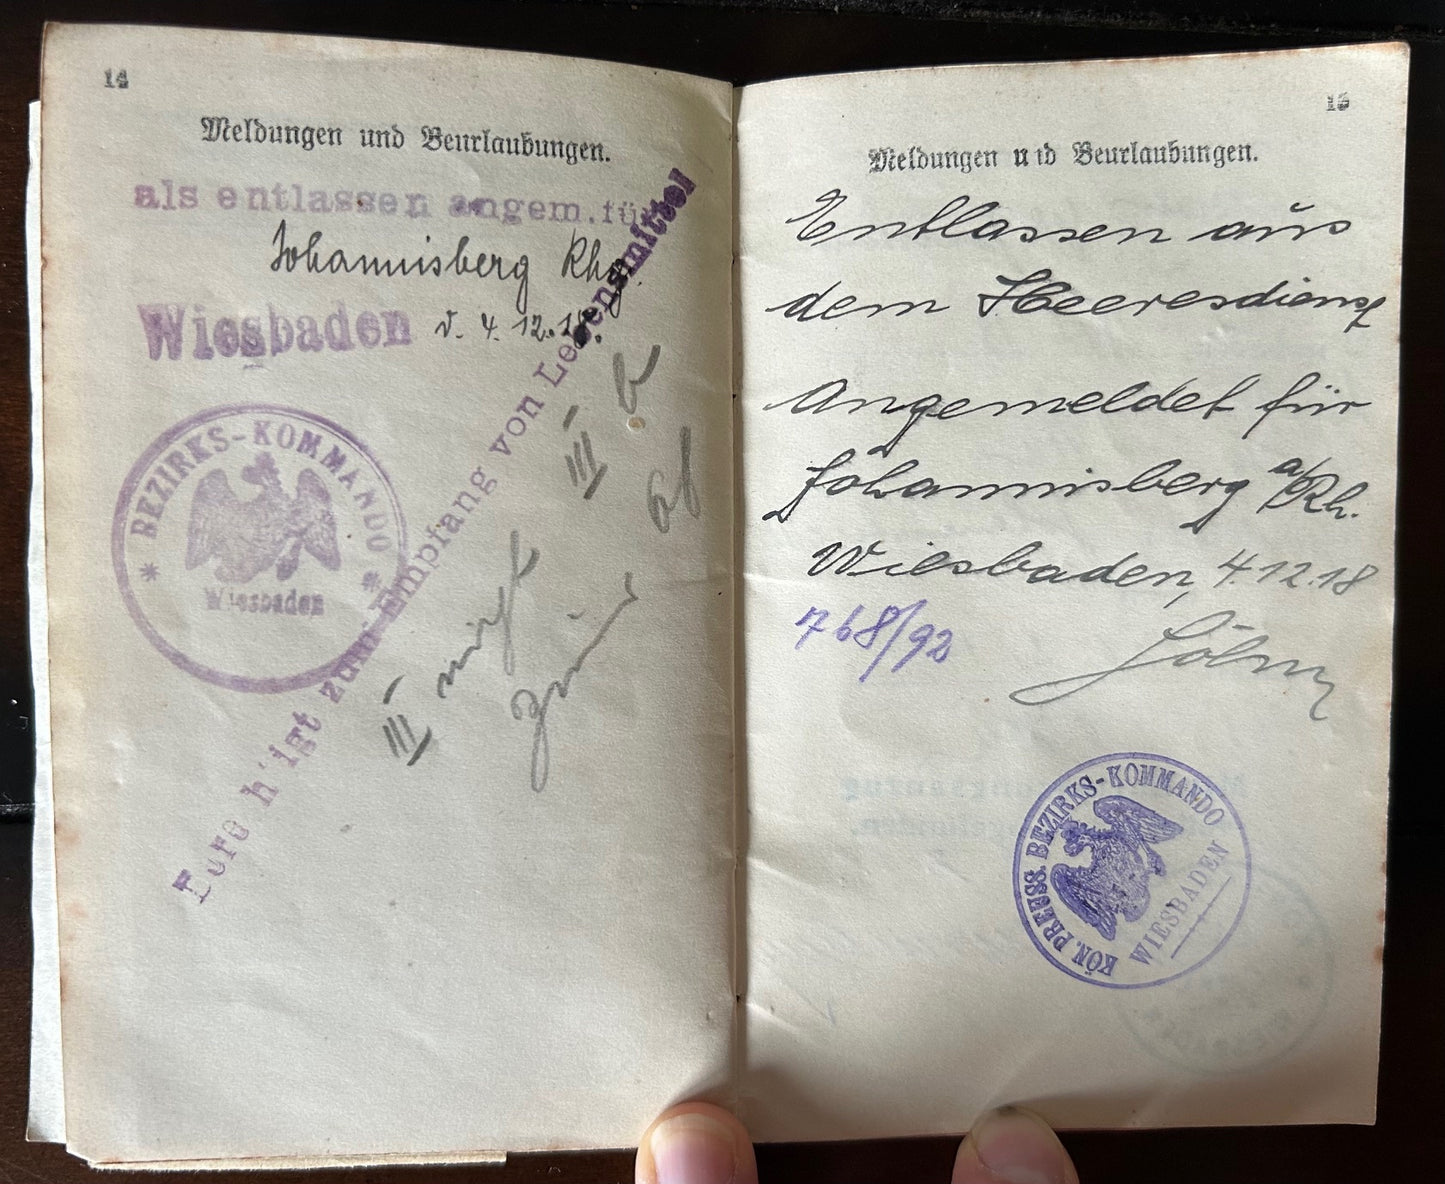 14
Meldungen und Beurlaubungen.
als entlassen angem. für
Johannisberg Rhg.
Wiesbaden v. 4.12.18.
BEZIRKS-KOMMANDO
Wiesbaden
zum Empfang von Lebensmittel
III b
III
15
Meldungen und Beurlaubungen.
Entlassen aus
dem Heeresdienst
Angemeldet für
Johannisberg a/Rh.
Wiesbaden, 4.12.18
768/92
KÖN. PREUSS. BEZIRKS-KOMMANDO
WIESBADEN